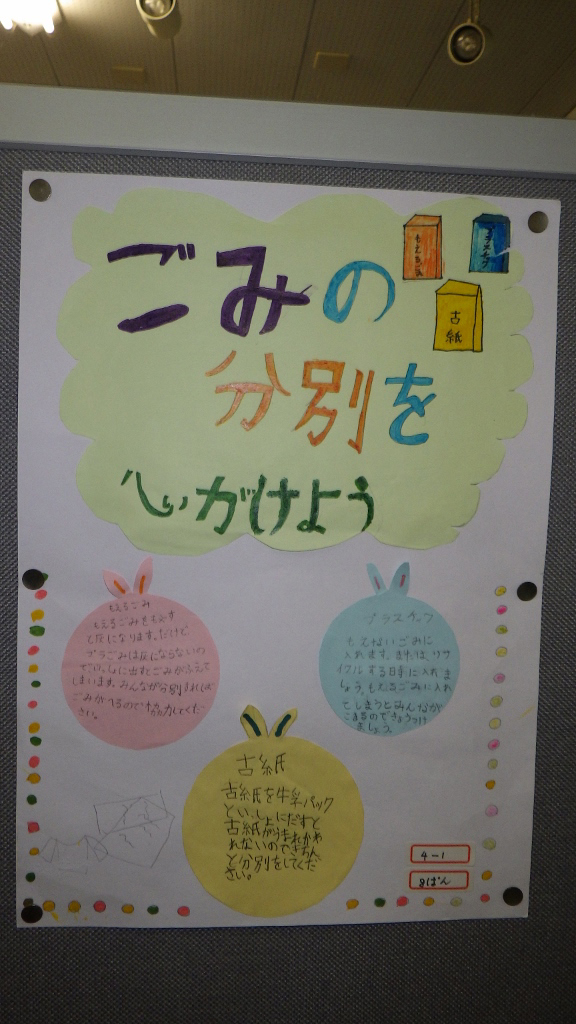 ごみの
分別を
心がけよう
もえるごみ
プラスチック
古紙
もえるごみ
もえるごみをもやす
と灰になります。だけど
プラごみは灰にならないの
でいっしょに出すとごみがふえて
しまいます。みんなが分別すれば
ごみがへるので協力してくだ
さい。
プラスチック
もえないごみに
入れます。または、リサ
イクルする日に入れま
しょう。もえるごみに入れ
てしまうとみんなが
こまるのできょうつけ
ましょう。
古紙
古紙を牛入パック
といっしょにだすと
古紙がうまれかわ
れないのできちん
と分別をしてくだ
さい。
4-1
8ぱん